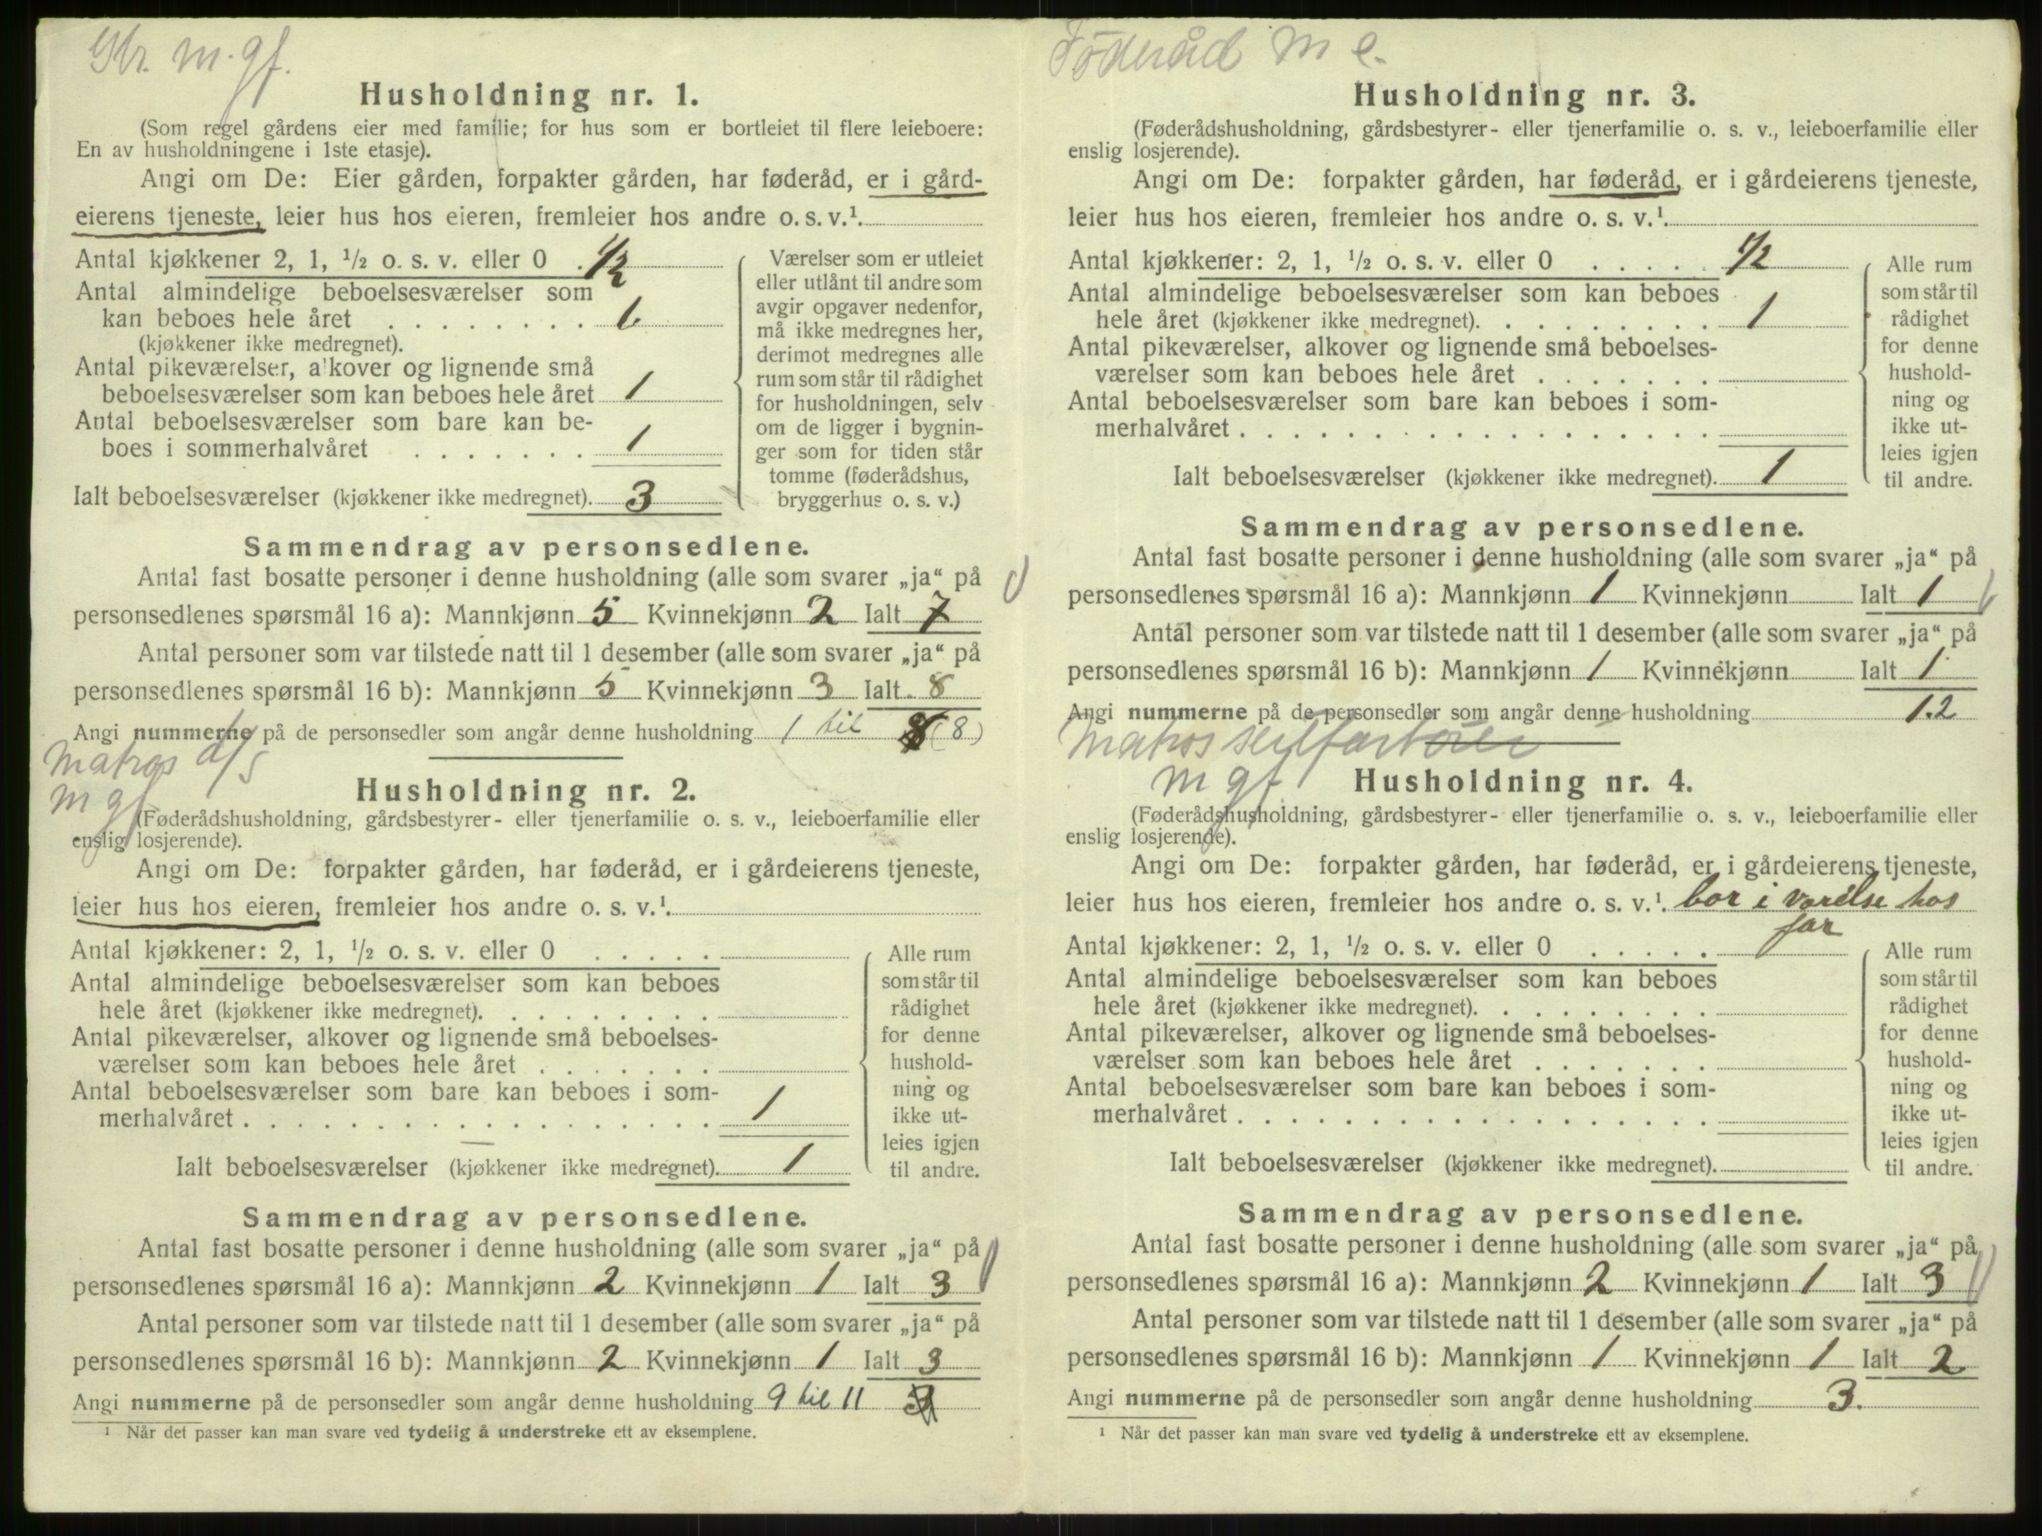 Gbr. m. gf.
Husholdning nr. 1.
(Som regel gårdens eier med familie; for hus som er bortleiet til flere leieboere:
En av husholdningene i 1ste etasje).
Angi om De: Eier gården, forpakter gården, har føderåd, er i gård-
eierens tjeneste, leier hus hos eieren, fremleier hos andre o. s. v.¹.
Antal kjøkkener 2, 1, ½ o. s. v. eller 0 . 1/2
Antal almindelige beboelsesværelser som
kan beboes hele året . . . . . . . . 1
(kjøkkener ikke medregnet).
Antal pikeværelser, alkover og lignende små
beboelsesværelser som kan beboes hele året 1
Antal beboelsesværelser som bare kan be-
boes i sommerhalvåret . . . . . . . 1
Ialt beboelsesværelser (kjøkkener ikke medregnet). 3
Værelser som er utleiet
eller utlånt til andre som
avgir opgaver nedenfor,
må ikke medregnes her,
derimot medregnes alle
rum som står til rådighet
for husholdningen, selv
om de ligger i bygnin-
ger som for tiden står
tomme (føderådshus,
bryggerhus o. s. v.)
Sammendrag av personsedlene.
Antal fast bosatte personer i denne husholdning (alle som svarer „ja“ på
personsedlenes spørsmål 16 a): Mannkjønn 5 Kvinnekjønn 2 Ialt 7
Antal personer som var tilstede natt til 1 desember (alle som svarer „ja“ på
personsedlenes spørsmål 16 b): Mannkjønn 5 Kvinnekjønn 3 Ialt 8
Angi nummerne på de personsedler som angår denne husholdning 1 til 8 (8)
Matros d/s
m gf
Husholdning nr. 2.
(Føderådshusholdning, gårdsbestyrer- eller tjenerfamilie o. s. v., leieboerfamilie eller
enslig losjerende).
Angi om De: forpakter gården, har føderåd, er i gårdeierens tjeneste,
leier hus hos eieren, fremleier hos andre o. s. v.¹.
Antal kjøkkener: 2, 1, ½ o. s. v. eller 0 . . . . .
Antal almindelige beboelsesværelser som kan beboes
hele året (kjøkkener ikke medregnet). . . . . . . . .
Antal pikeværelser, alkover og lignende små beboelses-
værelser som kan beboes hele året . . . . . . .
Antal beboelsesværelser som bare kan beboes i som-
merhalvåret . . . . . . . . . . . . . . . . . . 1
Ialt beboelsesværelser (kjøkkener ikke medregnet). 1
Alle rum
som står til
rådighet
for denne
hushold-
ning og
ikke ut-
leies igjen
til andre.
Sammendrag av personsedlene.
Antal fast bosatte personer i denne husholdning (alle som svarer „ja“ på
personsedlenes spørsmål 16 a): Mannkjønn 2 Kvinnekjønn 1 Ialt 3
Antal personer som var tilstede natt til 1 desember (alle som svarer „ja“ på
personsedlenes spørsmål 16 b): Mannkjønn 2 Kvinnekjønn 1 Ialt 3
Angi nummerne på de personsedler som angår denne husholdning 9 til 11
¹ Når det passer kan man svare ved tydelig å understreke ett av eksemplene.
Føderåd m e.
Husholdning nr. 3.
(Føderådshusholdning, gårdsbestyrer- eller tjenerfamilie o. s. v., leieboerfamilie eller
enslig losjerende).
Angi om De: forpakter gården, har føderåd, er i gårdeierens tjeneste,
leier hus hos eieren, fremleier hos andre o. s. v.¹.
Antal kjøkkener: 2, 1, ½ o. s. v. eller 0 . . . . . 1/2
Antal almindelige beboelsesværelser som kan beboes
hele året (kjøkkener ikke medregnet). . . . . . . . . 1
Antal pikeværelser, alkover og lignende små beboelses-
værelser som kan beboes hele året . . . . . . .
Antal beboelsesværelser som bare kan beboes i som-
merhalvåret . . . . . . . . . . . . . . . . . .
Ialt beboelsesværelser (kjøkkener ikke medregnet). 1
Alle rum
som står til
rådighet
for denne
hushold-
ning og
ikke ut-
leies igjen
til andre.
Sammendrag av personsedlene.
Antal fast bosatte personer i denne husholdning (alle som svarer „ja“ på
personsedlenes spørsmål 16 a): Mannkjønn 1 Kvinnekjønn Ialt 1
Antal personer som var tilstede natt til 1 desember (alle som svarer „ja“ på
personsedlenes spørsmål 16 b): Mannkjønn 1 Kvinnekjønn Ialt 1
Angi nummerne på de personsedler som angår denne husholdning 12
Matros seilfartøier
m gf.
Husholdning nr. 4.
(Føderådshusholdning, gårdsbestyrer- eller tjenerfamilie o. s. v., leieboerfamilie eller
enslig losjerende).
Angi om De: forpakter gården, har føderåd, er i gårdeierens tjeneste,
leier hus hos eieren, fremleier hos andre o. s. v.¹. bor i værelse hos
far
Antal kjøkkener: 2, 1, ½ o. s. v. eller 0 . . . . .
Antal almindelige beboelsesværelser som kan beboes
hele året (kjøkkener ikke medregnet). . . . . . . . .
Antal pikeværelser, alkover og lignende små beboelses-
værelser som kan beboes hele året . . . . . . .
Antal beboelsesværelser som bare kan beboes i som-
merhalvåret . . . . . . . . . . . . . . . . . .
Ialt beboelsesværelser (kjøkkener ikke medregnet).
Alle rum
som står til
rådighet
for denne
hushold-
ning og
ikke ut-
leies igjen
til andre.
Sammendrag av personsedlene.
Antal fast bosatte personer i denne husholdning (alle som svarer „ja“ på
personsedlenes spørsmål 16 a): Mannkjønn 2 Kvinnekjønn 1 Ialt 3
Antal personer som var tilstede natt til 1 desember (alle som svarer „ja“ på
personsedlenes spørsmål 16 b): Mannkjønn 1 Kvinnekjønn 1 Ialt 2
Angi nummerne på de personsedler som angår denne husholdning 3.
¹ Når det passer kan man svare ved tydelig å understreke ett av eksemplene.